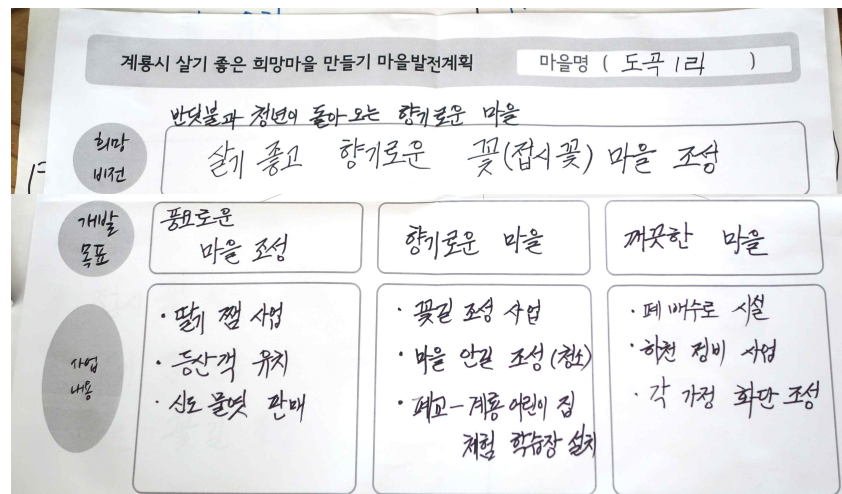 계룡시 살기 좋은 희망마을 만들기 마을발전계획
마을명 ( 도곡 1리 )
반딧불과 청년이 돌아 오는 향기로운 마을
희망
비전
살기 좋고 향기로운 꽃(접시꽃) 마을 조성
개발
목표
풍요로운
마을 조성
향기로운 마을
깨끗한 마을
사업
내용
· 딸기 쨈 사업
· 등산객 유치
· 신도 물엿 판매
· 꽃길 조성 사업
· 마을 안길 조성(청소)
· 폐교-계룡 어린이 집
체험 학습장 설치
· 폐 배수로 시설
· 하천 정비 사업
· 각 가정 화단 조성